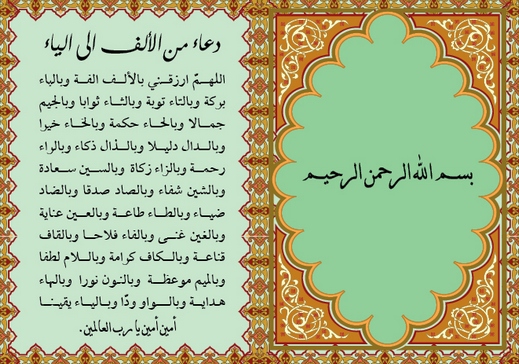 بسم الله الرحمن الرحيم
دعاء من الألف الى الياء
اللهمّ ارزقني بالألف الفة وبالباء
بركة وبالتاء توبة وبالثاء ثوابا وبالجيم
جمالا وبالحاء حكمة وبالخاء خيرا
وبالدال دليلا وبالذال ذكاء وبالراء
رحمة وبالزاء زكاة وبالسين سعادة
وبالشين شفاء وبالصاد صدقا وبالضاد
ضياء وبالطاء طاعة وبالعين عناية
وبالغين غنى وبالفاء فلاحا وبالقاف
قناعة وبالكاف كرامة وباللام لطفا
وبالميم موعظة وبالنون نورا وبالهاء
هداية وبالواو ودّا وبالياء يقينا
أمين أمين يا رب العالمين.